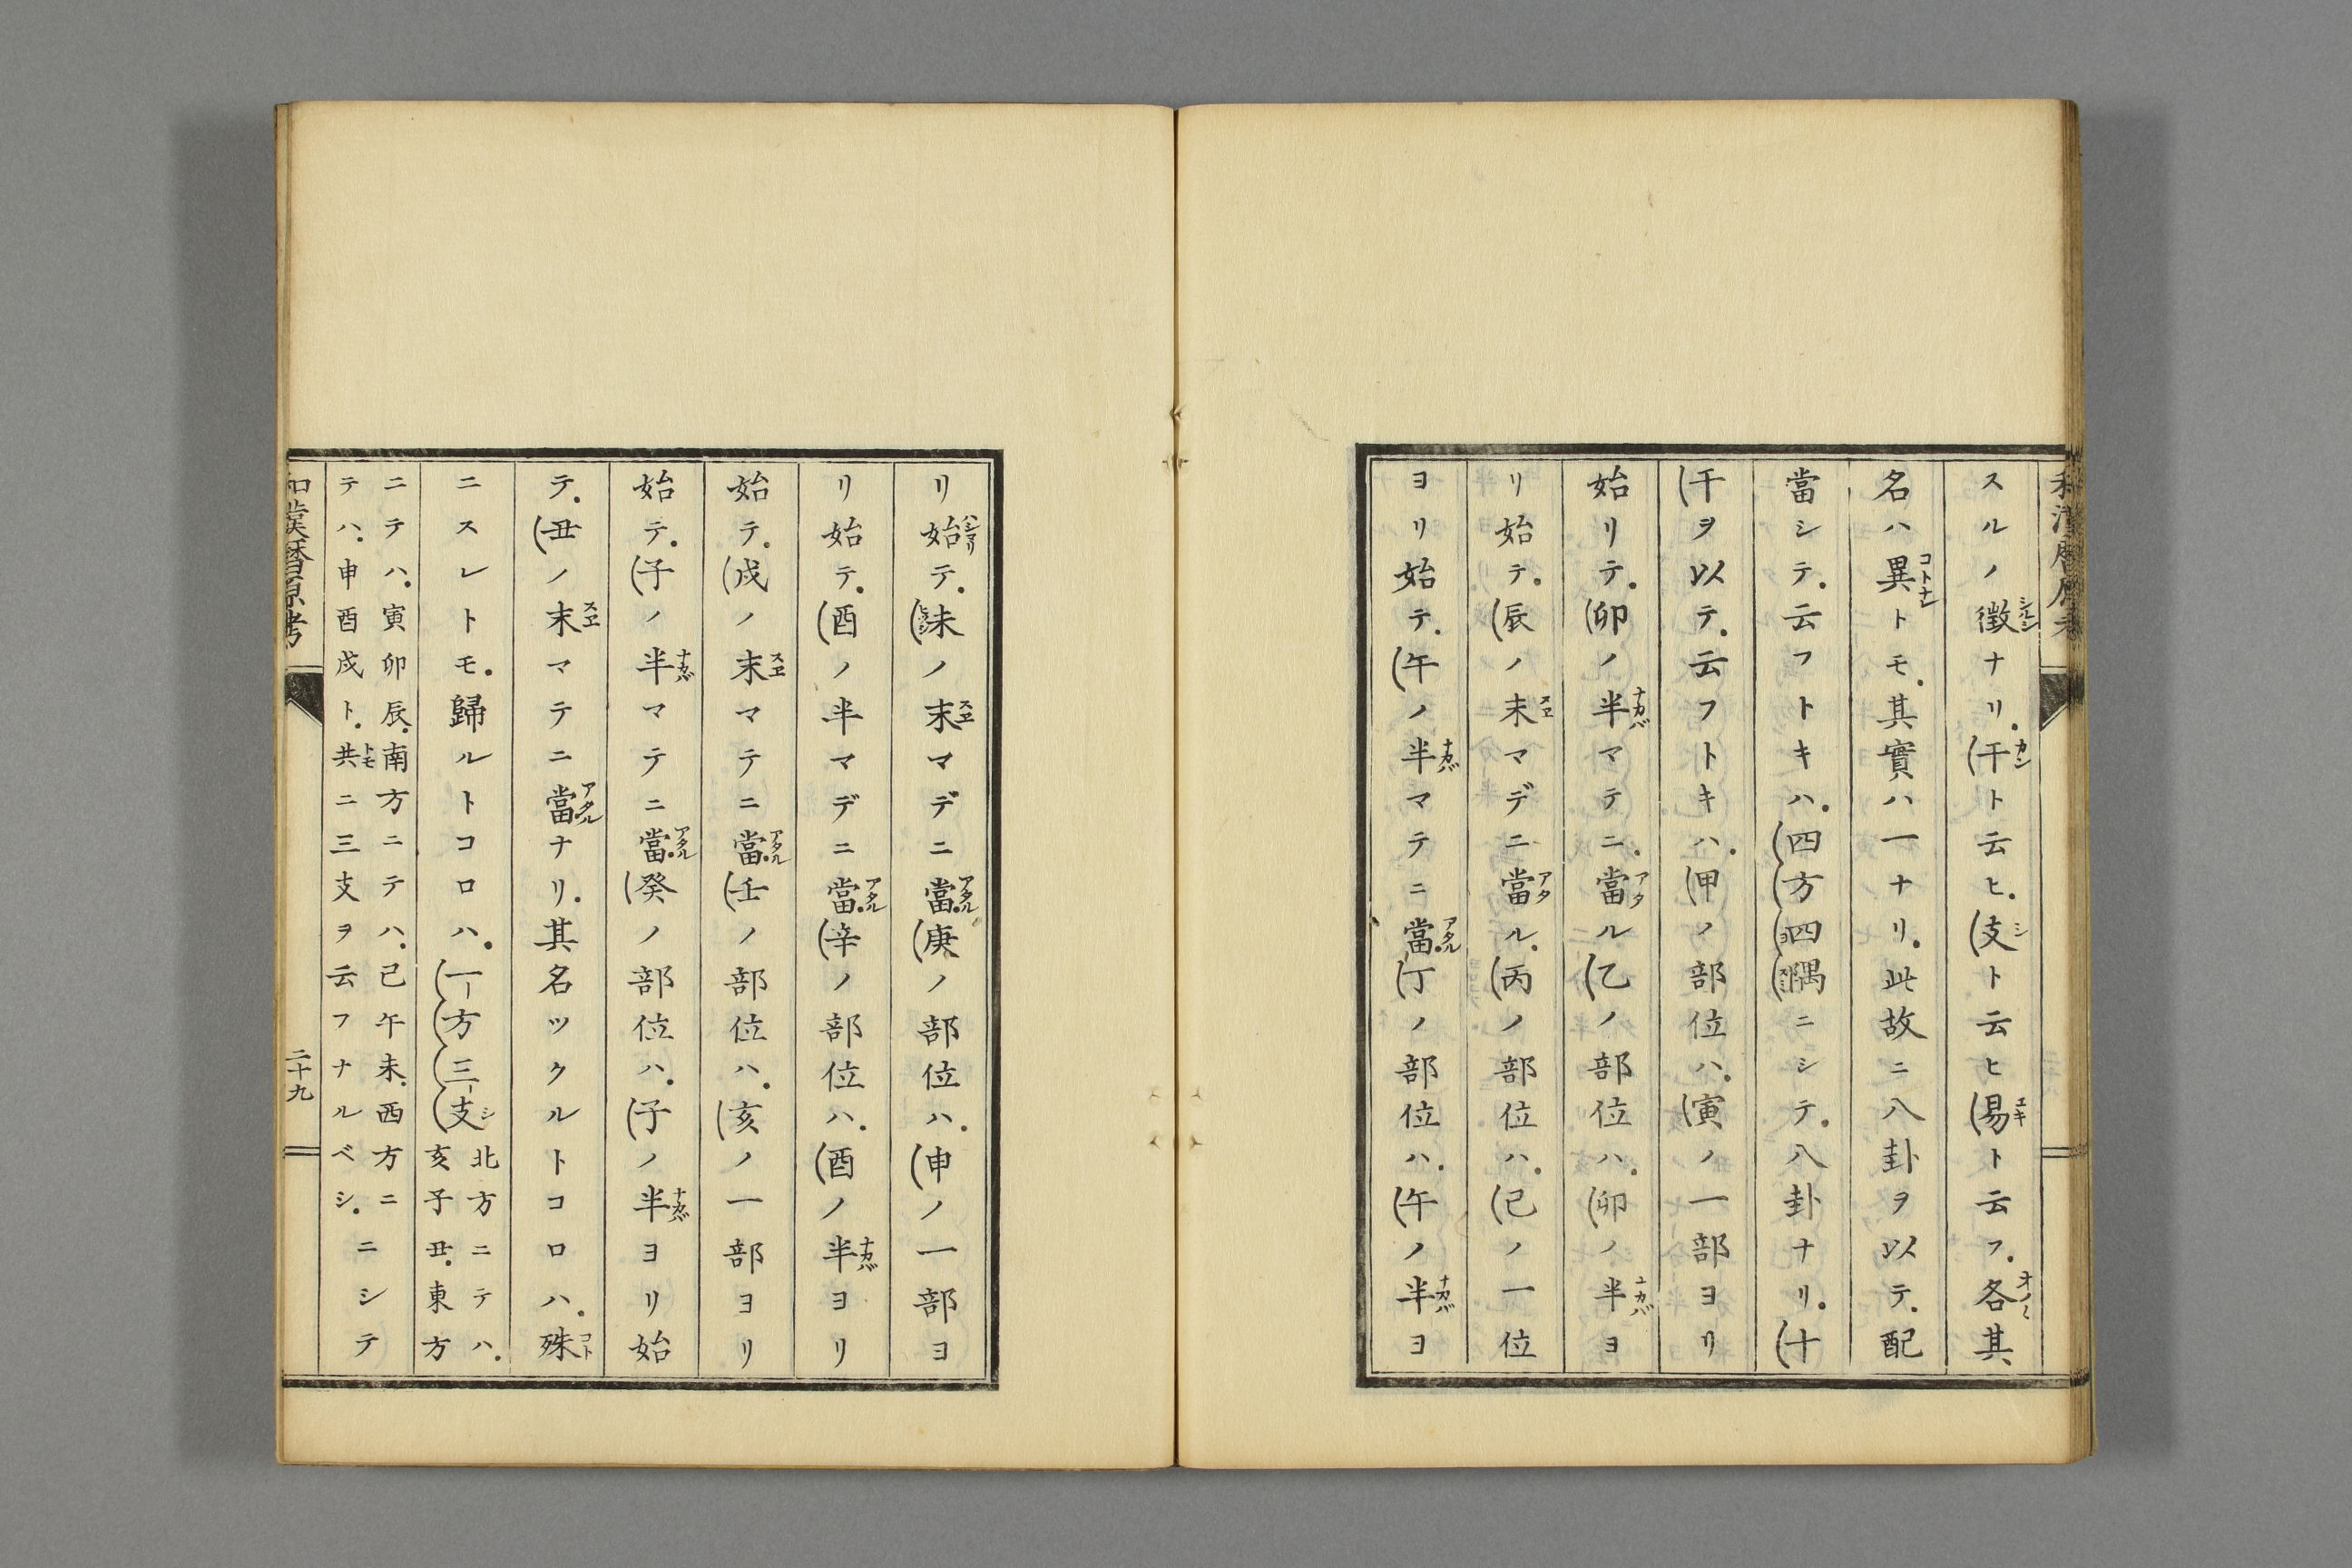 スルノ徴ナリ。干ト云ヒ。支ト云ヒ易ト云フ。各其
名ハ異トモ。其實ハ一ナリ。此故ニ八卦ヲ以テ。配
當シテ。云フトキハ。四方四隅ニシテ。八卦ナリ。十
干ヲ以テ。云フトキハ。甲ノ部位ハ。寅ノ一部ヨリ
始リテ。卯ノ半マテニ。當ル乙ノ部位ハ。卯ノ半ヨ
リ始テ。辰ノ末マデニ當ル。丙ノ部位ハ。巳ノ一位
ヨリ始テ。午ノ半マテニ當。丁ノ部位ハ。午ノ半ヨ
リ始テ。未ノ末マデニ當。庚ノ部位ハ。申ノ一部ヨ
リ始テ。酉ノ半マデニ當。辛ノ部位ハ。酉ノ半ヨリ
始テ。戌ノ末マテニ當。壬ノ部位ハ。亥ノ一部ヨリ
始テ。子ノ半マテニ當。癸ノ部位ハ。子ノ半ヨリ始
テ。丑ノ末マテニ當ナリ。其名ツクルトコロハ。殊
ニスレトモ。歸ルトコロハ。一方三支北方ニテハ。亥子丑。東方
ニテハ。寅卯辰。南方ニテハ。已午未。西方ニ
テハ。申酉戌ト。共ニ三支ヲ云フナルベシ。ニシテ
和漢暦原考
二十九